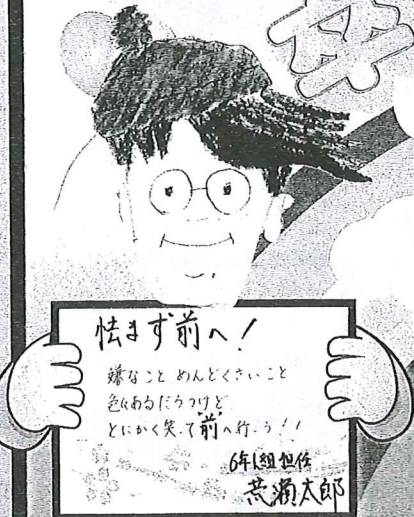 卒
怯まず前へ!
嫌なこと めんどくさいこと
色々あるだろうけど
とにかく笑って前へ行こう!!
6年1組 担任
太郎